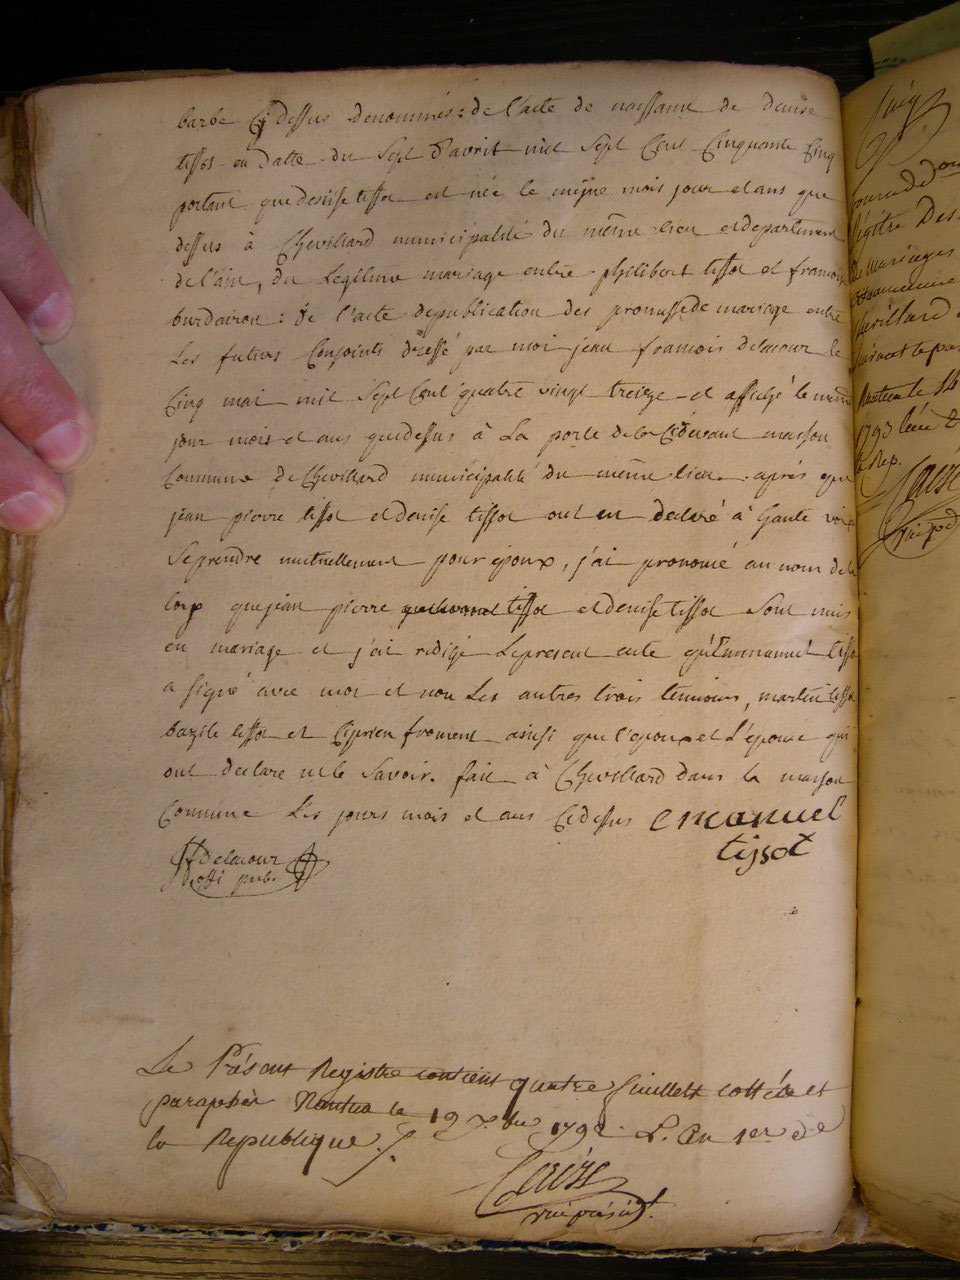 barbe Cy dessus denommés: de l'acte de naissance de denise
tissot en datte du sept d'avril mil sept Cent Cinquante Cinq
portant que denise tissot est née le même mois jour et ans que
dessus à Chevillard municipalité du même lieu et departement
de l'ain, du Legitime mariage entre philibert tissot et francoise
burdairon: de l'acte de publication des promesse de mariage entre
Les futurs Conjoints dressé par moi jean francois delacour le
Cinq mai mil sept Cent quatre vingt treize et affiché le même
jour mois et ans que dessus à La porte de la Cidevant maison
Commune de Chevillard municipalité du même lieu. après que
jean pierre tissot et denise tissot ont en declaré à haute voix
se prendre mutuellement pour epoux, j'ai prononcé au nom de la
Loix que jean pierre tissot et denise tissot sont unis
en mariage et j'ai redigé Le present acte qu'Emmanuel tissot
a signé avec moi et non Les autres trois temoins, martin tissot
bazile tissot et Ciprien froment ainsi que l'epoux et L'epouse qui
ont declare ne le savoir. fait à Chevillard dans la maison
Commune Les jours mois et ans Cidessus emanuel
tissot
Jf delacour
offi pub.
Le Présent Registre contient quatre feuillets cottés et
paraphés Nantua le 19 Xbre 1792. L'an 1er de
la Republique
vice président.
1793